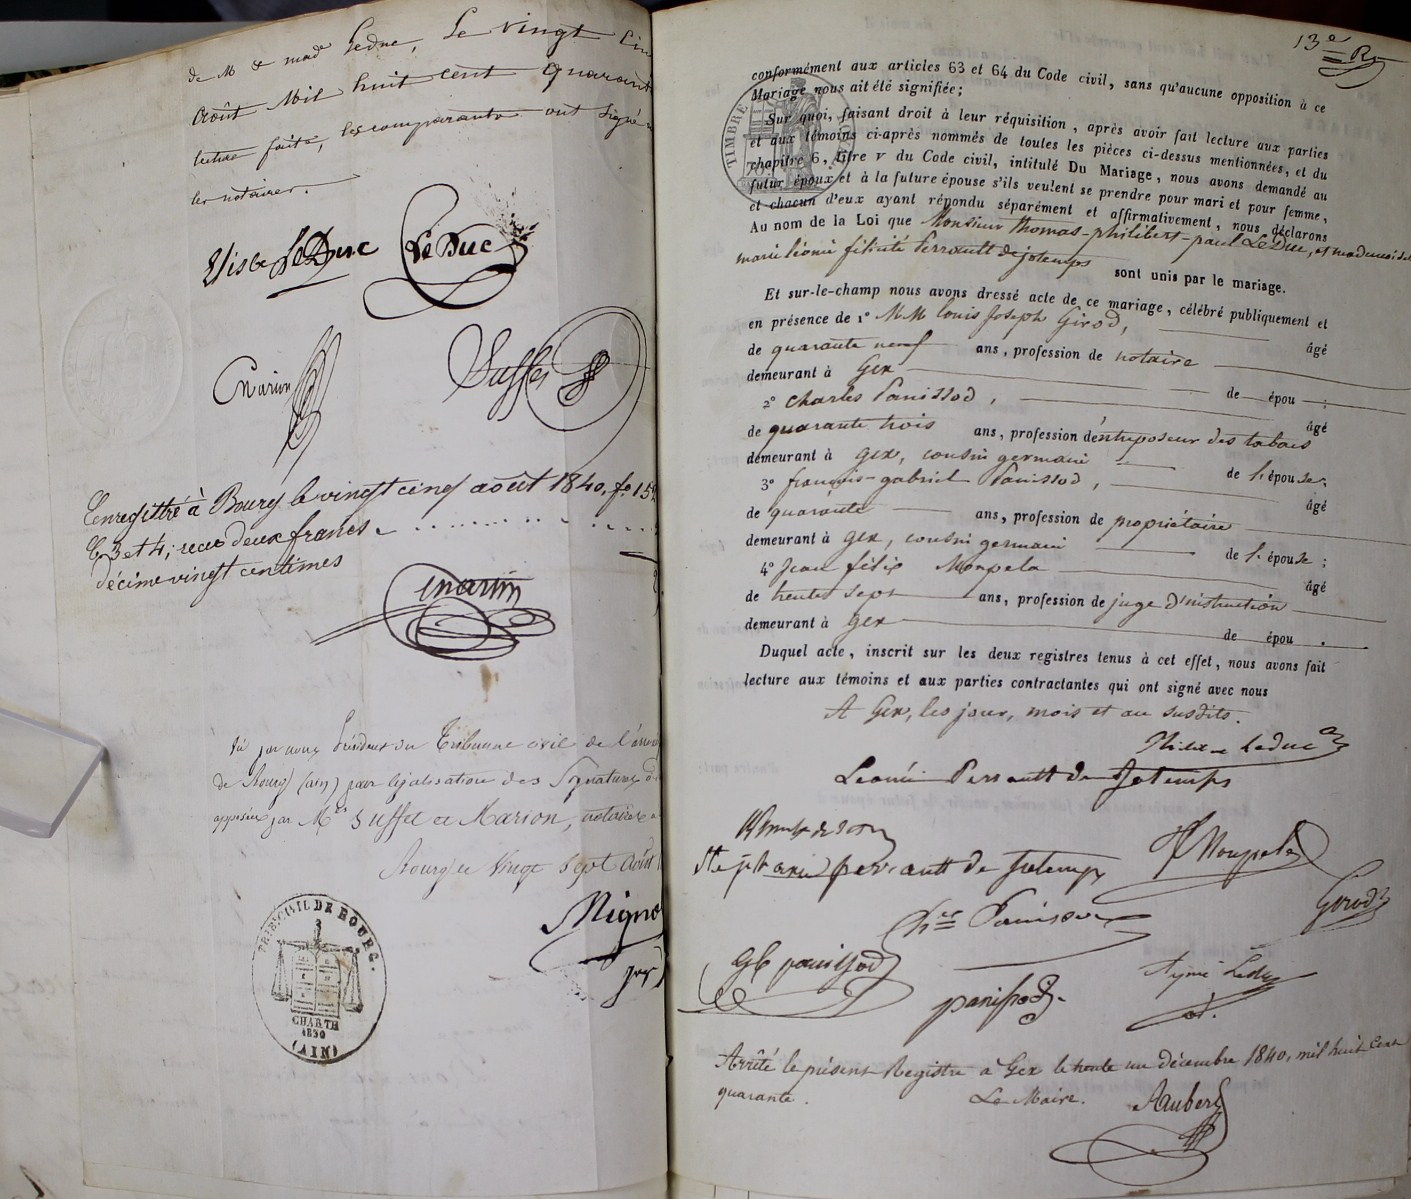 de M & made Leduc, Le vingt cinq
Août Mil huit cent quarante
lecture faite, les comparants ont signé
les notaires.
Elisbe LeDuc LeDuc
Marion Suffet
Enregistré à Bourg le vingt cinq août 1840, fo 15
C. 3 et 4; reçu deux francs
Décime vingt centimes
Marion
Vu par nous Président du Tribunal civil de l'arro
de Bourg (ain) pour légalisation des Signatures
apposées par Mes Suffet et Marion, notaires
Bourg le Vingt Sept Août
TRIB. CIVIL DE BOURG.
CHARTE
1830
(AIN)
13e
TIMBRE ROYAL
conformément aux articles 63 et 64 du Code civil, sans qu'aucune opposition à ce
Mariage nous ait été signifiée;
Sur quoi, faisant droit à leur réquisition, après avoir fait lecture aux parties
et aux témoins ci-après nommés de toutes les pièces ci-dessus mentionnées, et du
chapitre 6, titre v du Code civil, intitulé Du Mariage, nous avons demandé au
futur époux et à la future épouse s'ils veulent se prendre pour mari et pour femme,
et chacun d'eux ayant répondu séparément et affirmativement, nous déclarons
Au nom de la Loi que Monsieur thomas-philibert-paul LeDuc, et mademoiselle
marie léonie félicité Perrault de jotemps sont unis par le mariage.
Et sur-le-champ nous avons dressé acte de ce mariage, célébré publiquement et
en présence de 1º MM louis Joseph Girod, âgé
de quarante neuf ans, profession de notaire
demeurant à Gex de épou ;
2º charles Panissod, âgé
de quarante trois ans, profession d'entreposeur des tabacs
demeurant à gex, cousin germain de l'épouse;
3º françois-gabriel Panissod, âgé
de quarante ans, profession de propriétaire
demeurant à gex, cousin germain de l'épouse;
4º Jean félix Monpela âgé
de trente sept ans, profession de juge d'instruction
demeurant à gex de épou .
Duquel acte, inscrit sur les deux registres tenus à cet effet, nous avons fait
lecture aux témoins et aux parties contractantes qui ont signé avec nous
A Gex, les jour, mois et an susdits.
Leduc
Léonie Perrault de Jotemps
Stephanie perrault de Jotemps Monpela
Girod
Ches Panissod
Gl panissod Aymé Leduc
panissod
Arrêté le présent Registre à Gex le trente un décembre 1840, mil huit cent
quarante. Le Maire.